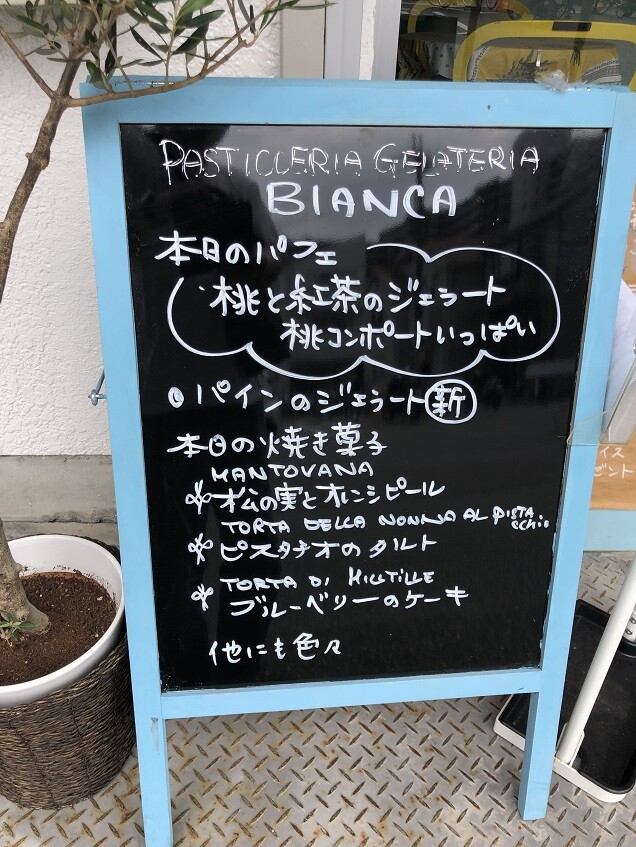 PASTICCERIA GELATERIA
BIANCA
本日のパフェ
桃と紅茶のジェラート
桃コンポートいっぱい
パインのジェラート 新
本日の焼き菓子
MANTOVANA
松の実とオレンジピール
TORTA DELLA NONNA AL PISTA
CCHIO
ピスタチオのタルト
TORTA DI MIRTILLE
ブルーベリーのケーキ
他にも色々
イス
ゼント